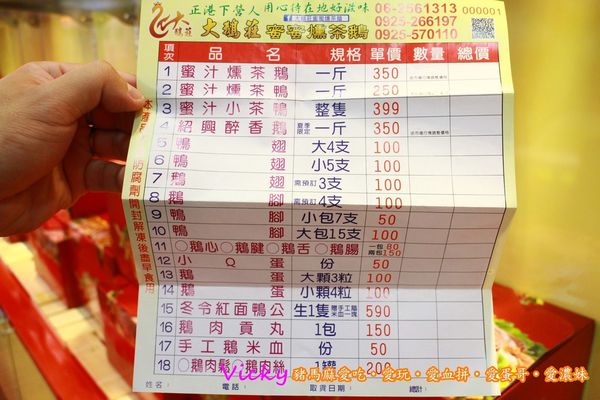 正港下營人 用心待在地好滋味
06-2561313 000001
大鵝莊
大鵝莊蜜蜜燻茶鵝
0925-266197
0925-570110
項次 品名 規格 單價 數量 總價
1 蜜汁燻茶鵝 一斤 350
2 蜜汁燻茶鴨 一斤 250
3 蜜汁小茶鴨 整隻 399
4 紹興醉香鵝 夏季限定 一斤 350
5 鴨翅 大4支 100
6 鴨翅 小5支 100
7 鵝翅 需預訂 3支 100
8 鵝腳 需預訂 4支 100
9 鴨腳 小包7支 50
10 鴨腳 大包15支 100
11 ○鵝心○鵝腱○鵝舌○鵝腸 一包80 兩包150
12 小Q蛋 份 50
13 滷蛋 大顆3粒 100
14 滷蛋 小顆4粒 100
15 冬令紅面鴨公 生1隻 贈手工鵝米血一塊 590
16 鵝肉貢丸 1包 150
17 手工鵝米血 份 50
18 ○鵝肉鬆○鵝肉絲 1罐 200
姓名: 電話: 取貨日期:
防腐劑開封解凍後盡早食用
Vicky 豬馬麻愛吃·愛玩·愛血拼·愛蛋哥·愛濃妹